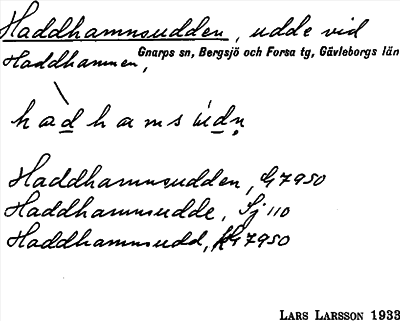 Haddhamnsudden, udde vid
Gnarps sn, Bergsjö och Forsa tg, Gävleborgs län
Haddhamnen,
hadhamsùdṇ
Haddhamnsudden, G7950
Haddhamnsudde, Sj 110
Haddhamnsudd, G7950
LARS LARSSON 1933